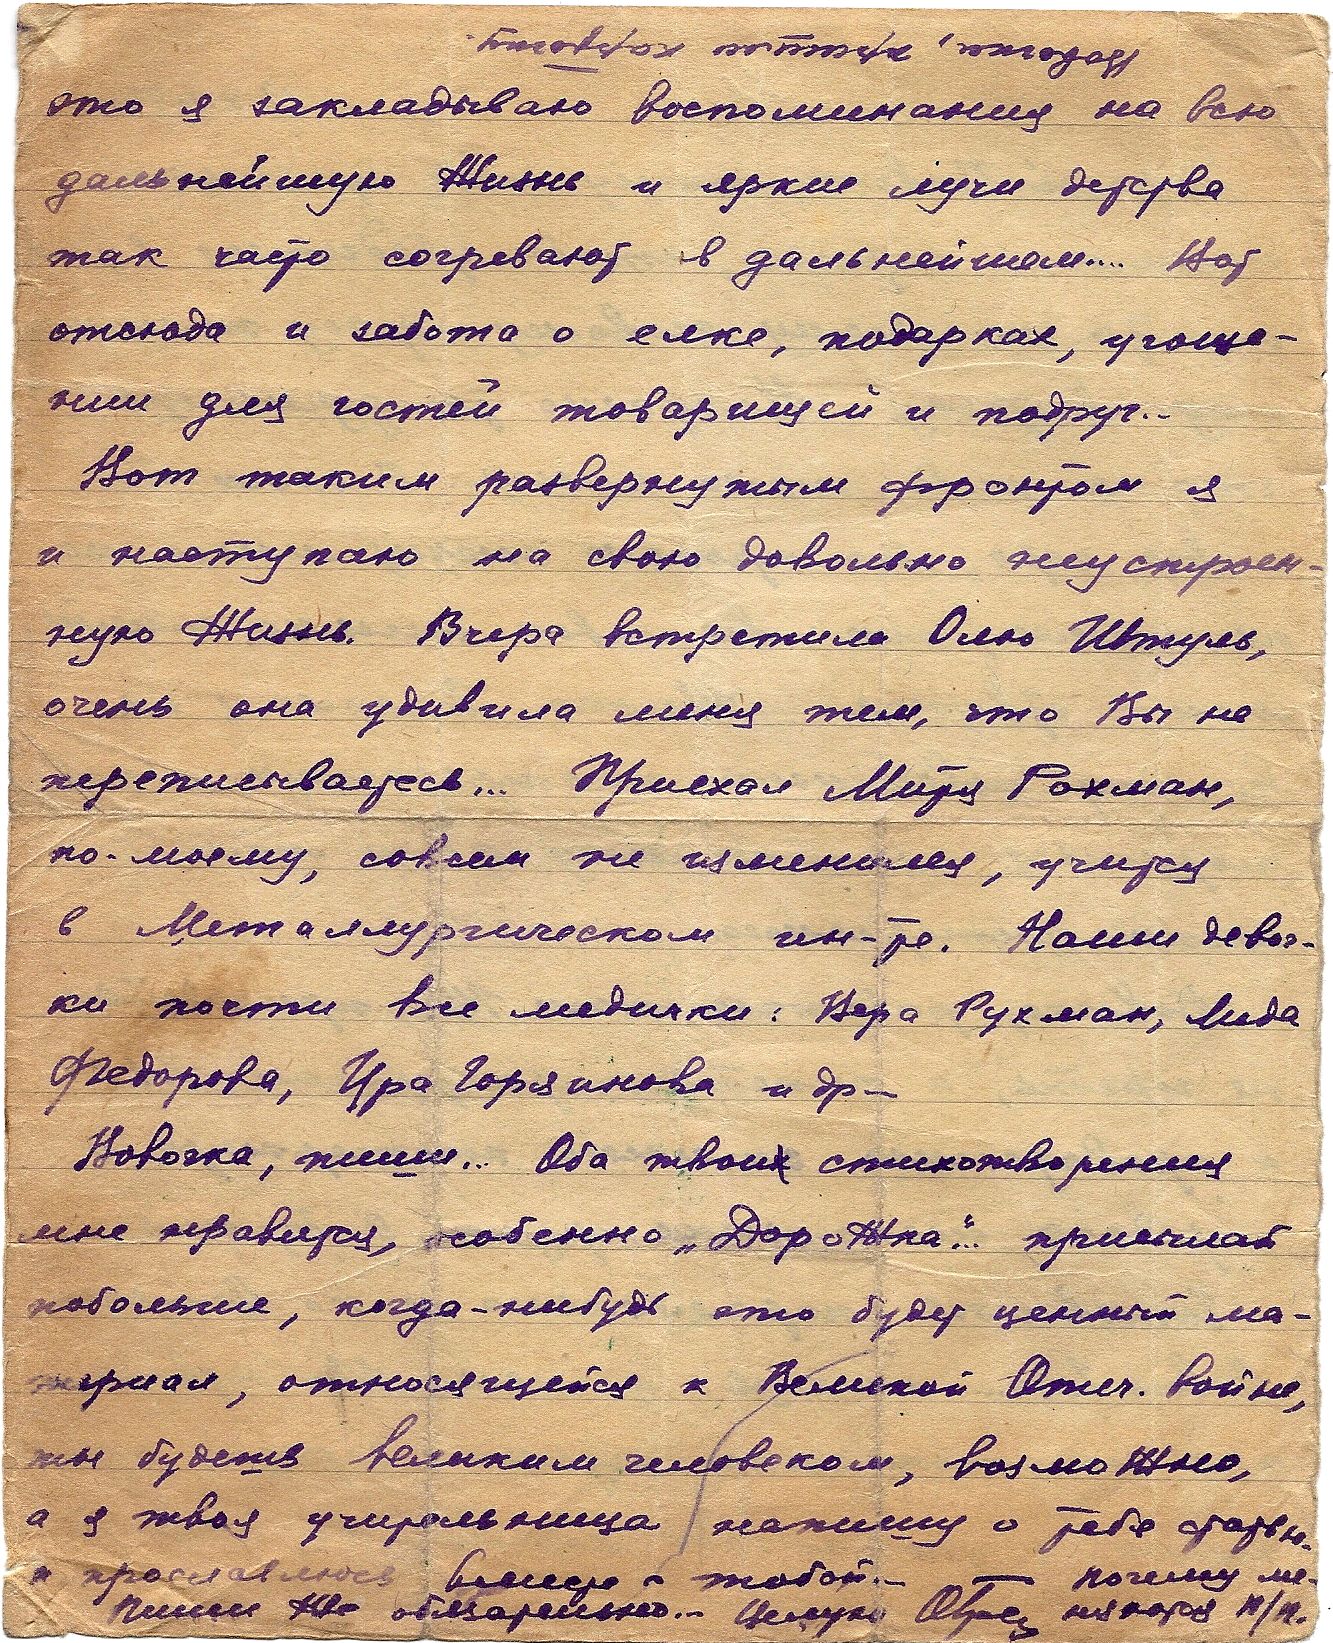 это я закладываю воспоминания на всю
дальнейшую жизнь и яркие лучи детства
так часто согревают в дальнейшем.... Вот
отсюда и забота о елке, подарках, угоще-
нии для гостей товарищей и подруг..
Вот таким развернутым фронтом я
и наступаю на свою довольно неустроен-
ную жизнь. Вчера встретила Олю Штуль,
очень она удивила меня тем, что Вы не
переписываетесь... Приехал Митя Рахман,
по-моему, совсем не изменился, учится
в Металлургическом ин-те. Наши девоч-
ки почти все медички: Вера Рухман, Лида
Федорова, Ира Горяинова и др-
Вовочка, пиши... Оба твоих стихотворения
мне нравятся, особенно „Дорожка“... присылай
побольше, когда-нибудь это будет ценный ма-
териал, относящейся к Великой Отеч. войне,
ты будешь великим человеком, возможно,
а я твоя учительница напишу о тебе статью.
и прославлюсь вместе с тобой.. — почему ме-
Пиши же обязательно.. Целую няются п/п.